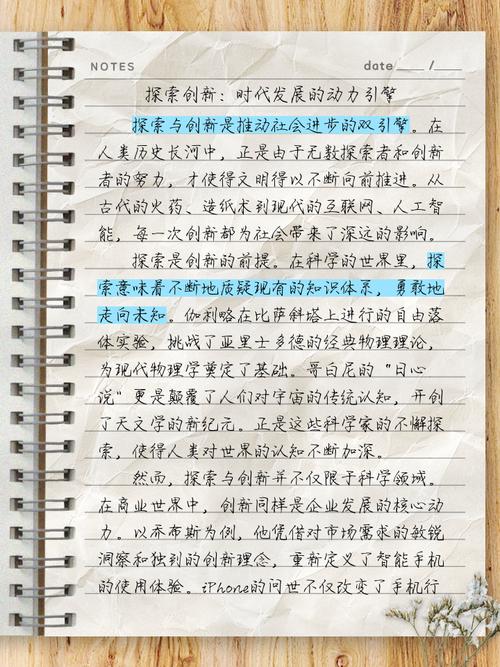 NOTES
date ____ / ____
探索创新：时代发展的动力引擎
探索与创新是推动社会进步的双引擎。在
人类历史长河中，正是由于无数探索者和创新
者的努力，才使得文明得以不断向前推进。从
古代的火药、造纸术到现代的互联网、人工智
能，每一次创新都为社会带来了深远的影响。
探索是创新的前提。在科学的世界里，探
索意味着不断地质疑现有的知识体系，勇敢地
走向未知。伽利略在比萨斜塔上进行的自由落
体实验，挑战了亚里士多德的经典物理理论，
为现代物理学奠定了基础。哥白尼的“日心
说”更是颠覆了人们对宇宙的传统认知，开创
了天文学的新纪元。正是这些科学家的不懈探
索，使得人类对世界的认知不断加深。
然而，探索与创新并不仅限于科学领域。
在商业世界中，创新同样是企业发展的核心动
力。以乔布斯为例，他凭借对市场需求的敏锐
洞察和独到的创新理念，重新定义了智能手机
的使用体验。iPhone的问世不仅改变了手机行